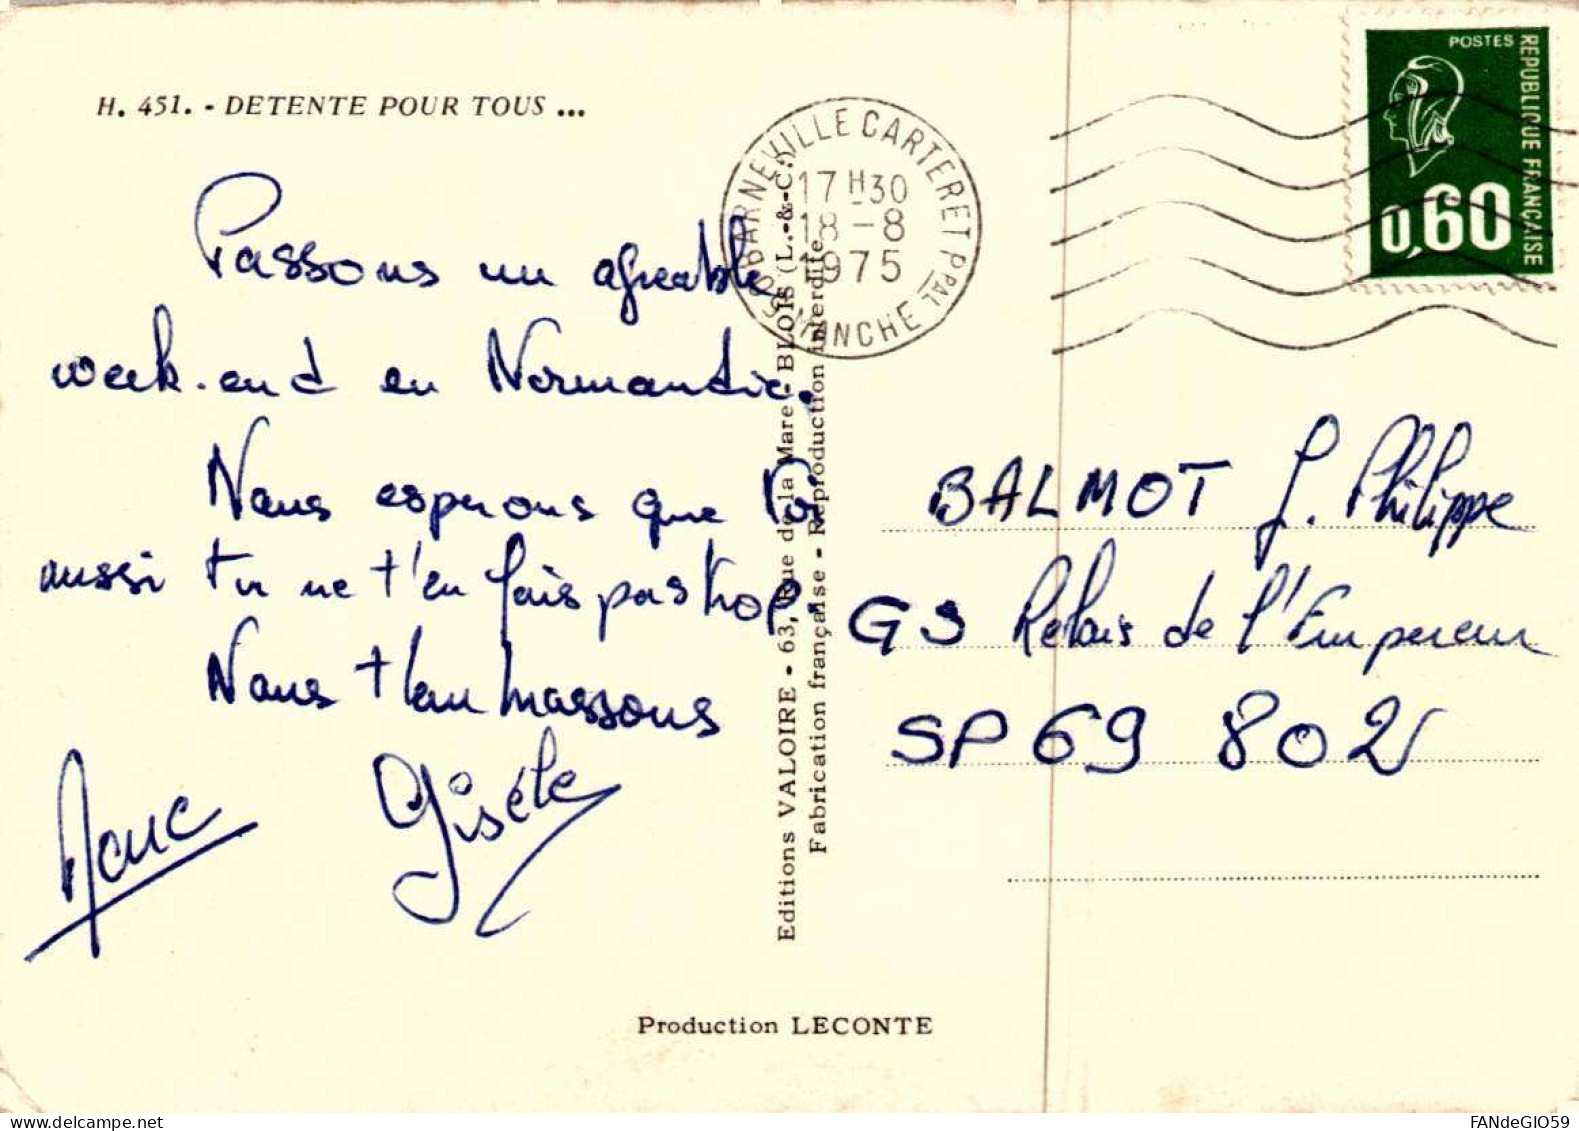 H. 451. - DETENTE POUR TOUS ...
Passons un agréable
week-end en Normandie.
Nous esperons que toi
aussi tu ne t'en fais pas trop.
Nous t'embrassons
Marc Gisèle
Editions VALOIRE - 63, Rue de la Mare - BLOIS (L.-&-C.)
Fabrication française - Reproduction interdite
Production LECONTE
50 BARNEVILLE CARTERET PPAL
17 H 30
18 - 8
1975
MANCHE
POSTES
REPUBLIQUE FRANÇAISE
0,60
BALMOT J. Philippe
GS Relais de l'Empereur
SP 69 802
FANdeGIO59